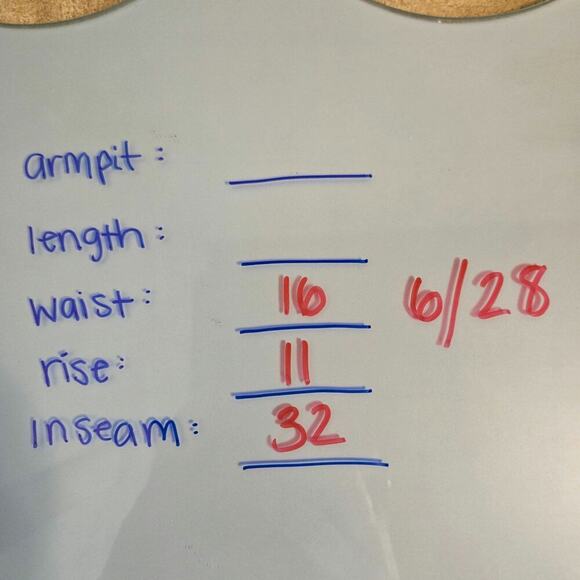 armpit:
length:
waist: 16 6/28
rise: 11
inseam: 32